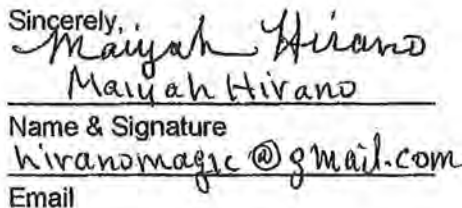 Sincerely,
Maiyah Hirano
Maiyah Hirano
Name & Signature
hiranomagic@gmail.com
Email